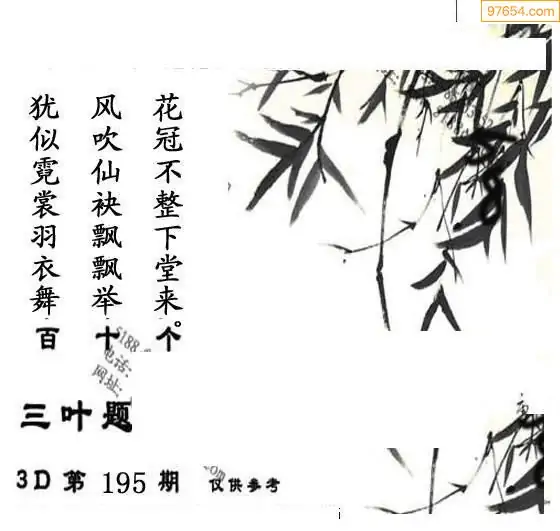 97654.com
花冠不整下堂来。
风吹仙袂飘飘举
犹似霓裳羽衣舞
百 十 个
5188
电话:
网址:
三叶题
3D 第 195 期 仅供参考